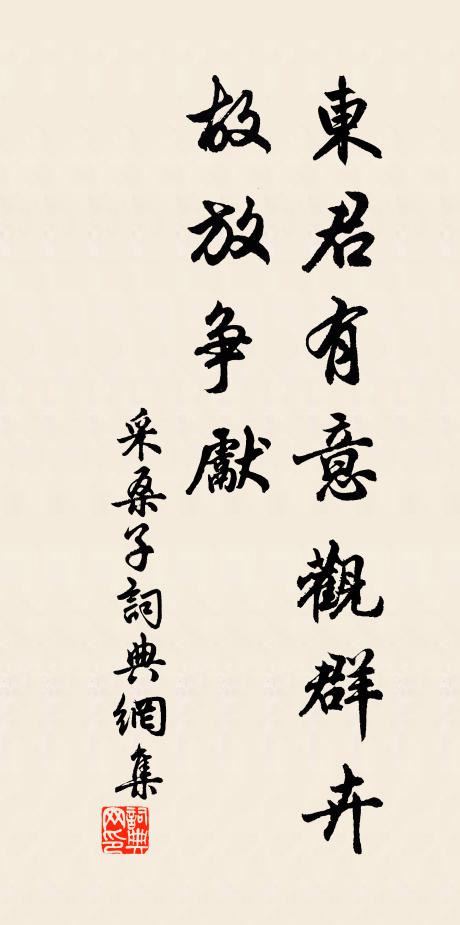 東君有意觀群卉
故放争獻
采桑子詞典網集
詞典网印